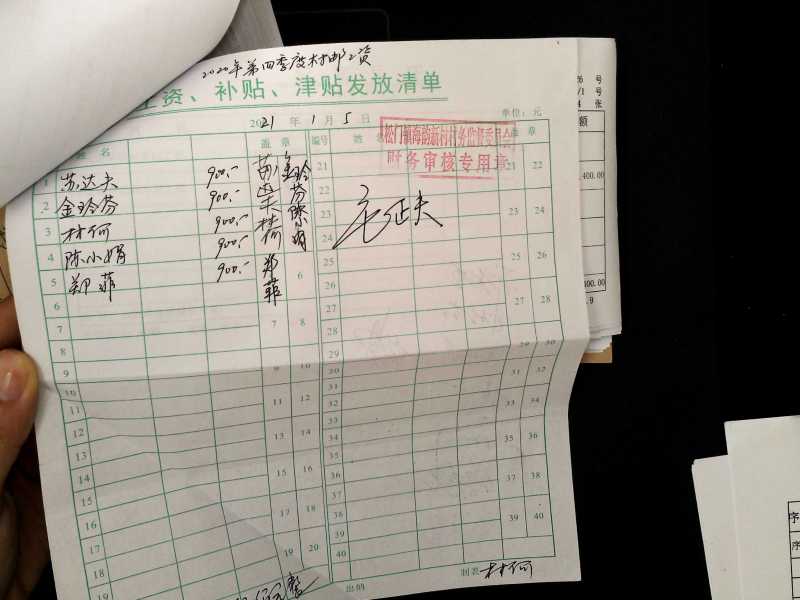 2020年第四季度村邮工资
工资、补贴、津贴发放清单
2021 年 1 月 5 日 单位：元
松门镇海韵新村村务监督委员会
财务审核专用章
姓 名 盖 章 编号 姓 名 盖 章
1 苏达夫 900.- 21 21 22
2 金玲芬 900.- 金玲芬 22
3 林何 900.- 林何 23 23 24
4 陈小娟 900.- 陈小娟 24
5 郑菲 900.- 郑菲 6 25 25 26
6 26
7 7 8 27 27 28
8 28
9 9 10 29 29 30
10 30
11 11 12 31 31 32
12 32
13 13 14 33 33 34
14 34
15 15 16 35 35 36
16 36
17 17 18 37 37 38
18 38
19 19 20 39 39 40
40
出纳 制表 林何
号
号
张
额
.400.00
400.00
.9
序
序